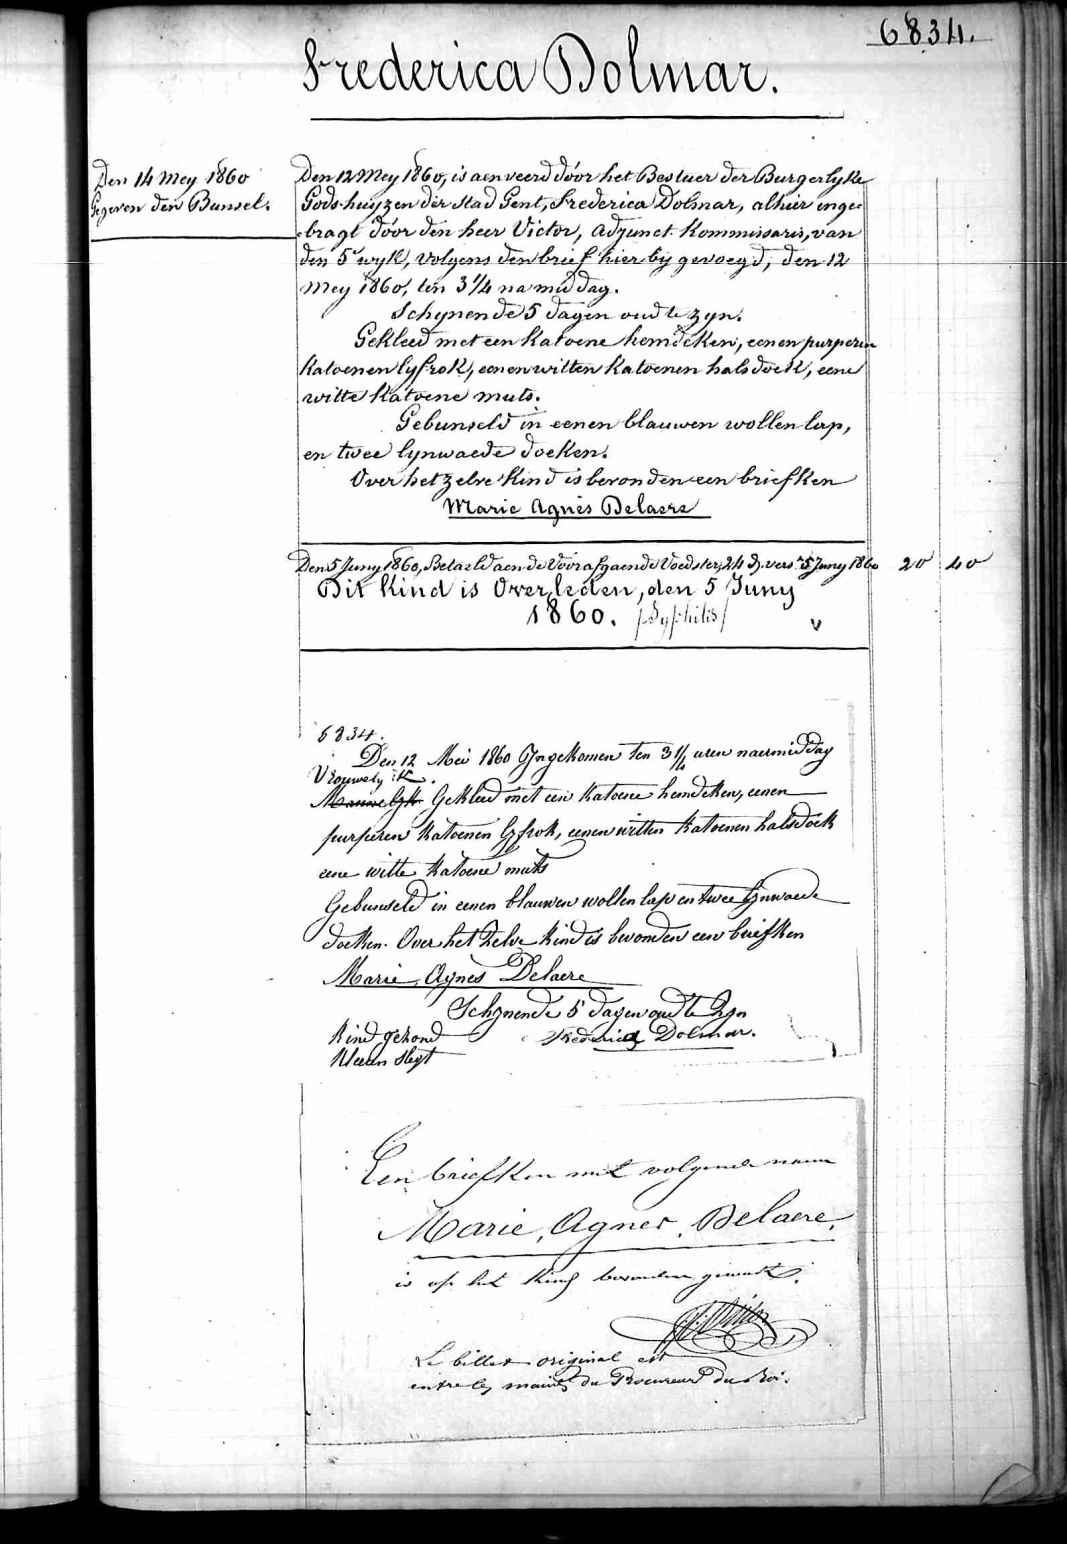 6834.
Frederica Dolmar.
Den 14 Mey 1860
Gegeven den Bunsel.
Den 12 Mey 1860, is aenveerd dóor het Bestuer der Burgerlyke
Gods-huyzen der stad Gent, Frederica Dolmar, alhier inge-
bragt dóor den heer Victor, Adjunct Kommissaris, van
den 5e wyk, volgens den brief hier by gevoegd, den 12
Mey 1860, ten 3 1/4 namiddag.
Schynende 5 dagen oud te zyn.
Gekleed met een katoene hemdeken, eenen purperen
katoenen lyfrok, eenen witten katoenen halsdoek, eene
witte katoene muts.
Gebunseld in eenen blauwen wollen lap,
en twee lynwaede doeken.
Over het zelve kind is bevonden een briefken
Marie Agnès Delaere
Den 5 Juny 1860, Betaeld aen de Vóorafgaende Voedster, 24 d. vers. 5 Juny 1860 20 40
Dit Kind is Overleden, den 5 Juny
1860. /Syphilis/ v
6834.
Den 12 Mei 1860 Ingekomen ten 3 1/4 uren naermiddag
Vrouwelyk.
Mannelyk Gekleed met een katoene hemdeken, eenen
purperen katoenen lyfrok, eenen witten katoenen halsdoek
eene witte katoene muts
Gebunseld in eenen blauwen wollen lap en twee lynwaede
doeken. Over het zelve kind is bevonden een briefken
Marie Agnes Delaere
Schynende 5 dagen oud te zyn
kind gezond Frederica Dolmar.
kleen slegt
Een briefken met volgende naem
Marie, Agnes, Delaere,
is op het kind bevonden geweest.
Victor
Le billet original est
entre les mains du Procureur du Roi.